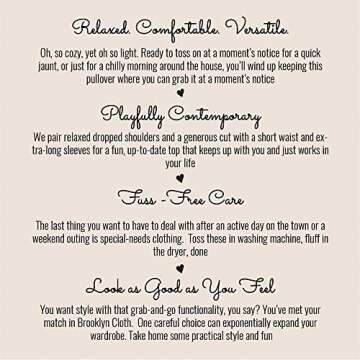 Relaxed. Comfortable. Versatile.
Oh, so cozy, yet oh so light. Ready to toss on at a moment's notice for a quick
jaunt, or just for a chilly morning around the house, you'll wind up keeping this
pullover where you can grab it at a moment's notice
Playfully Contemporary
We pair relaxed dropped shoulders and a generous cut with a short waist and ex-
tra-long sleeves for a fun, up-to-date top that keeps up with you and just works in
your life
Fuss -Free Care
The last thing you want to have to deal with after an active day on the town or a
weekend outing is special-needs clothing. Toss these in washing machine, fluff in
the dryer, done
Look as Good as You Feel
You want style with that grab-and-go functionality, you say? You've met your
match in Brooklyn Cloth. One careful choice can exponentially expand your
wardrobe. Take home some practical style and fun